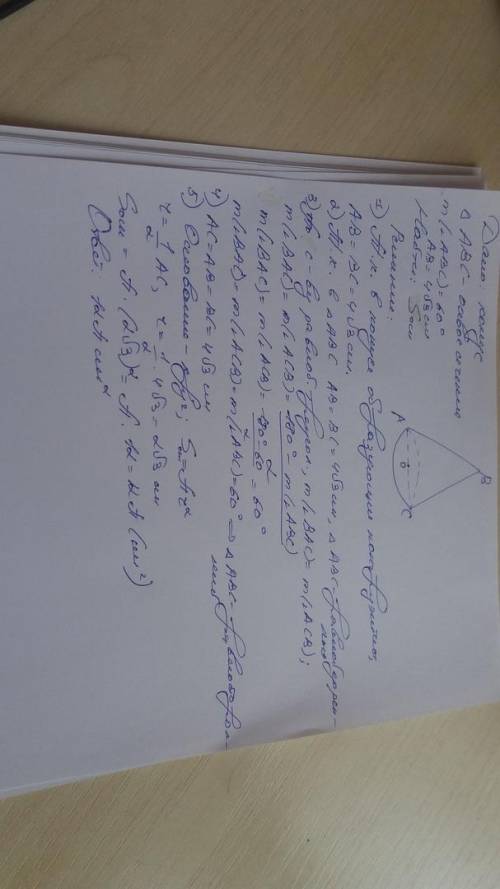 Дано: конус
△ ABC - осевое сечение
m(∠ABC)=60°
AB = 4√3 см
Найти: Sосн
Решение:
B
A
C
O
1) Т.к. в конусе образующие конгруэнтны,
AB = BC = 4√3 см.
2) Т.к. в △ABC AB = BC = 4√3 см, △ABC - равнобедрен-
ный
3) По с-ву равноб. треуг., m(∠BAC) = m(∠ACB);
m(∠BAC) = m(∠ACB) = (180° - m(∠ABC))/2
m(∠BAC) = m(∠ACB) = (180°-60°)/2 = 60°
m(∠BAC) = m(∠ACB) = m(∠ABC) = 60° ⇒ △ABC - равносторон-
ний
4) AC = AB = BC = 4√3 см
5) Основание - круг; S = πr²
r = 1/2 AC, r = 1/2 · 4√3 = 2√3 см
Sосн = π · (2√3)² = π · 12 = 12π (см²)
Ответ: 12π см²